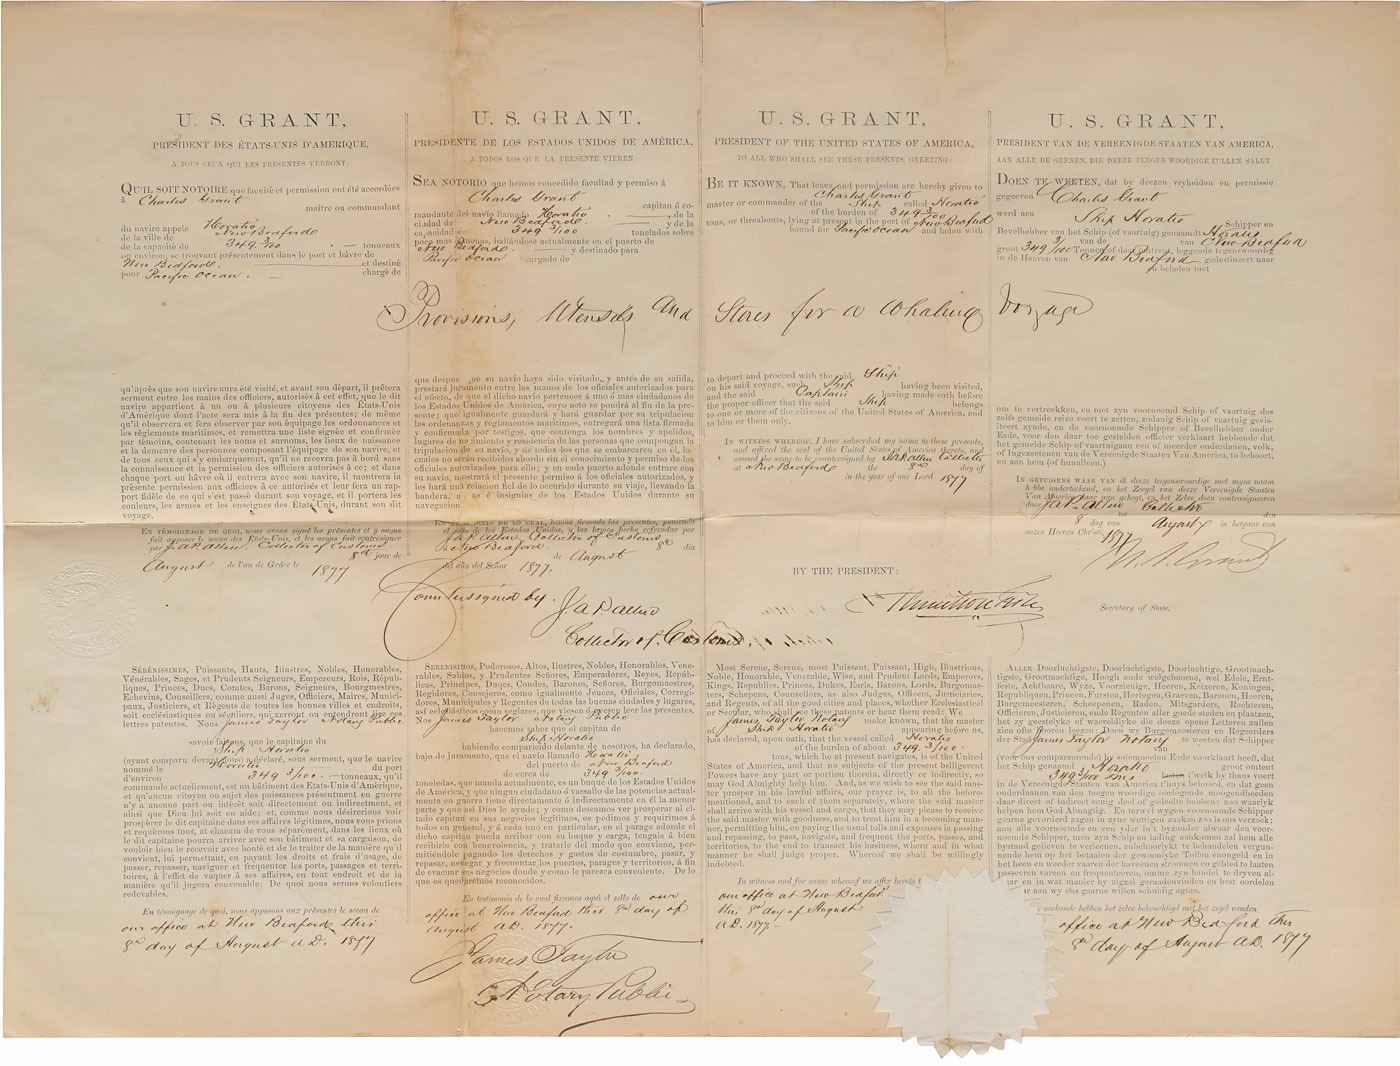 U. S. GRANT,
PRESIDENT DES ÉTATS-UNIS D'AMERIQUE,
A TOUS CEUX QUI LES PRESENTES VERRONT:
QU'IL SOIT NOTOIRE que faculté et permission ont été accordées
à Charles Grant
maître ou commandant
du navire appelé Horatio
de la ville de New Bedford
de la capacité de 349 3/100 tonneaux
ou environ, se trouvant présentement dans le port et hâvre de
New Bedford et destiné
pour Pacific Ocean chargé de
U. S. GRANT,
PRESIDENTE DE LOS ESTADOS UNIDOS DE AMÉRICA,
A TODOS LOS QUE LA PRESENTE VIEREN:
SEA NOTORIO que hemos concedido facultad y permiso á
Charles Grant capitan ó co-
mandante del navio llamado Horatio de la
ciudad de New Bedford y de la
capacidad de 349 3/100 toneladas sobre
poco mas ó menos, hallándose actualmente en el puerto de
New Bedford y destinado para
Pacific Ocean cargado de
U. S. GRANT,
PRESIDENT OF THE UNITED STATES OF AMERICA,
TO ALL WHO SHALL SEE THESE PRESENTS, GREETING:
BE IT KNOWN, That leave and permission are hereby given to
Charles Grant
master or commander of the Ship called Horatio
of the burden of 349 3/100
tons, or thereabouts, lying at present in the port of New Bedford
bound for Pacific Ocean and laden with
U. S. GRANT,
PRESIDENT VAN DE VEREENIGDE STAATEN VAN AMERICA,
AAN ALLE DE GEENEN, DIE DEEZE TEEGEN WOORDIGE ZULLEN, SALUT.
DOEN TE WEETEN, dat by deezen vryheiden en permissie
gegeeven Charles Grant
werd aen Ship Horatio Schipper en
Bevelhebber van het Schip (of vaartuig) genaamdt Horatio
van de van New Bedford
groot 349 3/100 Tonnen of daar omtrent, leggende tegenwoordig
in de Haaven van New Bedford gedestineert naar
en beladen met
Provisions, Utensils and Stores for a Whaling Voyage
qu'après que son navire aura été visité, et avant son départ, il prêtera
serment entre les mains des officiers, autorisés à cet effet, que le dit
navire appartient à un ou à plusieurs citoyens des États-Unis
d'Amérique dont l'acte sera mis à la fin des présentes; de même
qu'il observera et fera observer par son équipage les ordonnances et
les règlements maritimes, et remettra une liste signée et confirmée
par témoins, contenant les noms et surnoms, les lieux de naissance
et la demeure des personnes composant l'équipage de son navire, et
de tous ceux qui s'y embarqueront, qu'il ne recevra pas à bord sans
la connaissance et la permission des officiers autorisés à ce; et dans
chaque port ou hâvre où il entrera avec son navire, il montrera la
présente permission aux officiers à ce autorisés et leur fera un rap-
port fidèle de ce qui s'est passé durant son voyage, et il portera les
couleurs, les armes et les enseignes des États-Unis, durant son dit
voyage.
EN TÉMOIGNAGE DE QUOI, nous avons signé les présentes et y avons
fait apposer le sceau des États-Unis, et les avons fait contresigner
par J. A. P. Allen, Collector of Customs
8th jour de
August de l'an de Grâce le 1877
que despues que su navio haya sido visitado, y antes de su salida,
prestará juramento entre las manos de los oficiales autorizados para
el efecto, de que dicho navio pertenece á uno ó mas ciudadanos de
los Estados Unidos de América, cuyo acto se pondrá al fin de la pre-
sente; que igualmente guardará y hará guardar por su tripulacion
las ordenanzas y reglamentos maritimos, entregará una lista firmada
y confirmada por testigos, que contenga los nombres y apellidos,
lugares de nacimiento y residencia de las personas que compongan la
tripulacion de su navio, y de todos los que se embarcaren en él, los
cuales no serán recibidos abordo sin el conocimiento y permiso de los
oficiales autorizados para ello; y en cada puerto adonde entrare con
su navio, mostrará el presente permiso á los oficiales autorizados, y
les hará una relacion fiel de lo ocurrido durante su viaje, llevando la
bandera, armas é insignias de los Estados Unidos durante su
navigacion.
EN TESTIMONIO DE LO CUAL, hemos firmado las presentes, poniendo
el sello de los Estados Unidos, y las hemos hecho refrendar por
J. A. P. Allen, Collector of Customs
at New Bedford 8th dia
de August
del año del Señor 1877.
to depart and proceed with the said Ship
on his said voyage, such Ship having been visited,
and the said Captain having made oath before
the proper officer that the said Ship belongs
to one or more of the citizens of the United States of America, and
to him or them only.
IN WITNESS WHEREOF, I have subscribed my name to these presents,
and affixed the seal of the United States of America thereto, and
caused the same to be countersigned by J. A. P. Allen Collector
at New Bedford the 8th day of
in the year of our Lord 1877
om te vertreekken, en met zyn voornoemd Schip of vaartuig des
zelfs gemeide reize voort te zetten, zodanig Schip of vaartuig gevis-
iteert zynde, en de voornoemde Schipper of Bevelhebber onder
Eede, voor den daar toe gestelden officier verklaart hebbende dat
het gemelde Schip of vaartuig aan een of meerderen, volk,
of Ingezeetenen van de Vereenigde Staaten Van America, to behoort,
en aan hem (of hunalleen.)
IN GETUIGENS WAAR VAN ik deeze tegenswoordige met myne naam
hebbe onderteekend, en het Zeegel van deeze Vereenigde Staaten
Van America daar aan gehegt, en het Zelve doen contrasigneren
door J. A. P. Allen Collector den
8 dag van August in hetjaar van
onzes Heeren Christi, 1877
U. S. Grant
BY THE PRESIDENT:
Hamilton Fish
Secretary of State.
Countersigned by J. A. P. Allen
Collector of Customs.
SÉRÉNISSIMES, Puissants, Hauts, Illustres, Nobles, Honorables,
Vénérables, Sages, et Prudents Seigneurs, Empereurs, Rois, Répu-
bliques, Princes, Ducs, Comtes, Barons, Seigneurs, Bourgmestres,
Echevins, Conseillers, comme aussi Juges, Officiers, Maires, Munici-
paux, Justiciers, et Régents de toutes les bonnes villes et endroits,
soit ecclésiastiques ou séculiers, qui verront ou entendront lire ces
lettres patentes. Nous James Taylor a Notary Public
savoir faisons, que le capitaine du
Ship Horatio
(ayant comparu devant nous) a déclaré, sous serment, que le navire
nommé le Horatio du port
d'environ 349 3/100 tonneaux, qu'il
commande actuellement, est un bâtiment des États-Unis d'Amérique,
et qu'aucun citoyen ou sujet des puissances présentement en guerre
n'y a aucune part ou intérêt soit directement ou indirectement, et
ainsi que Dieu lui soit en aide; et, comme nous désirerions voir
prospérer le dit capitaine dans ses affaires légitimes, nous vous prions
et requérons tous, et chacun de vous séparément, dans les lieux où
le dit capitaine pourra arriver avec son bâtiment et cargaison, de
vouloir bien le recevoir avec bonté et de le traiter de la manière qu'il
convient, lui permettant, en payant les droits et frais d'usage, de
passer, repasser, naviguer et fréquenter les ports, passages, et terri-
toires, à l'effet de vaquer à ses affaires, en tout endroit et de la
manière qu'il jugera convenable: De quoi nous serons volontiers
redevables.
En témoignage de quoi, nous apposons aux présentes le sceau de
our office at New Bedford, this
8th day of August A.D. 1877
SERENISIMOS, Poderosos, Altos, Ilustres, Nobles, Honorables, Vene-
rables, Sabios, y Prudentes Señores, Emperadores, Reyes, Repúb-
licas, Principes, Duques, Condes, Barones, Señores, Burgomaestres,
Regidores, Consejeros, como igualmente Jeuces, Oficiales, Corregi-
dores, Municipales y Regentes de todas las buenas ciudades y lugares,
asi eclesiásticos como seglares, que viesen ó oyesen leer las presentes.
Nos James Taylor a Notary Public
hacemos saber que el capitan de
Ship Horatio
habiendo comparecido delante de nosotros, ha declarado,
bajo de juramento, que el navio llamado Horatio
del puerto de New Bedford
de cerca de 349 3/100
toneledas, que manda actualmente, es un buque de los Estados Unidos
de América, y que ningun ciudadano ó vasallo de las potencias actual-
mente en guerra tiene directamente ó indirectamente en él la menor
parte y que asi Dios le ayude; y como desearamos ver prosperar al ci-
tado capitan en sus negocios legitimos, os pedimos y requirimos á
todos en general, y á cada uno en particular, en el parage adonde el
dicho capitan pueda arribar con su buque y carga, tengais á bien
recibirle con benevolencia, y tratarle del modo que conviene, per-
mitiéndole pagando los derechos y gastos de costumbre, pasar, y
repasar, navegar y frecuentar los puertos, parages y territorios, á fin
de evacuar sus negocios donde y como le parezca conveniente. De lo
que os quedaremos reconocidos.
En testimonio de lo cual fixamos aqui el sello de our
office at New Bedford this 8th day of
August A.D. 1877.
James Taylor
Notary Public
MOST Serene, Serene, most Puissant, Puissant, High, Illustrious,
Noble, Honorable, Venerable, Wise, and Prudent Lords, Emperors,
Kings, Republics, Princes, Dukes, Earls, Barons, Lords, Burgomas-
ters, Schepens, Counsellors, as also Judges, Officers, Justiciaries,
and Regents, of all the good cities and places, whether Ecclesiastical
or Secular, who shall see these patents or hear them read: We
James Taylor Notary make known, that the master
of Ship Horatio appearing before us,
has declared, upon oath, that the vessel called Horatio
of the burden of about 349 3/100
tons, which he at present navigates, is of the United
States of America, and that no subjects of the present belligerent
Powers have any part or portion therein, directly or indirectly, so
may God Almighty help him. And, as we wish to see the said mas-
ter prosper in his lawful affairs, our prayer is, to all the before-
mentioned, and to each of them separately, where the said master
shall arrive with his vessel and cargo, that they may please to receive
the said master with goodness, and to treat him in a becoming man-
ner, permitting him, on paying the usual tolls and expenses in passing
and repassing, to pass, navigate, and frequent the ports, passes, and
territories, to the end to transact his business, where and in what
manner he shall judge proper. Whereof we shall be willingly
indebted.
In witness and for cause whereof we affix hereto
our office at New Bedford
this 8th day of August
A.D. 1877
ALLER Doorluchtigste, Doorluchtigste, Doorluchtige, Grootmach-
tigste, Grootmachtige, Hoogh ende welgeboorne, wel Edele, Eren-
tfeste, Achtbaare, Wyze, Voorzienige, Heeren, Keizeren, Koningen,
Republiquen, Princen, Fursten, Hertogen, Graeven, Baronen, Heeren,
Burgemeesteren, Scheepenen, Raden, Mitsgarders, Rechteren,
Officieren, Justicieren, ende Regenten aller goede steden en plaatzen,
het zy geestelyke of waereldlyke die deeze open Letteren zullen
zien ofte hooren leezen: Doen wy Burgemeesteren en Regeerders
der Stad James Taylor Notary te weeten dat Schipper
van
(voor ons compareerende) by solemneelen Eede voorklaart heeft, dat
het Schip genaamd Horatio groot omtrent
349 3/100 tons Lasten t'welk hy thans voert
in de Vereenigde Staaten van America t'huys behoord, en dat geen
onderdaanen van den teegen woordige oorloogende moogendheeden
daar direct of indirect eenig deel of gedeelte hebben: zoo waarlyk
helpen hem God Almagtig. En terwyl wygen voornoemden Schipper
gaerne gevorderd zagen in zyne wettigen zaaken zoo is uns verzoek:
aan alle voornoemde en een yder in't byzonder alwaar den voor-
noemde Schipper, met zyn schip en lading aankomen zal hem alle
bystand gelieven te verleenen, enbehoorlykt te behandelen vergun-
nende hem op het betaalen der gewoonlyke Tollen enongeld en in
het heen en weeder vaaren der haevenen stroomen en gebied te laaten
passeeren vaeren en frequenteeren, omme te handelen ter dryven al-
daar en in wat manier hy zigzal geraadenvinden en best oordelen
waar aan wy ons gaarne willen schuldig agten.
oorkonde hebben het zelve bekrachtigd met het zegel vanden
office at New Bedford this
8th day of August A.D. 1877